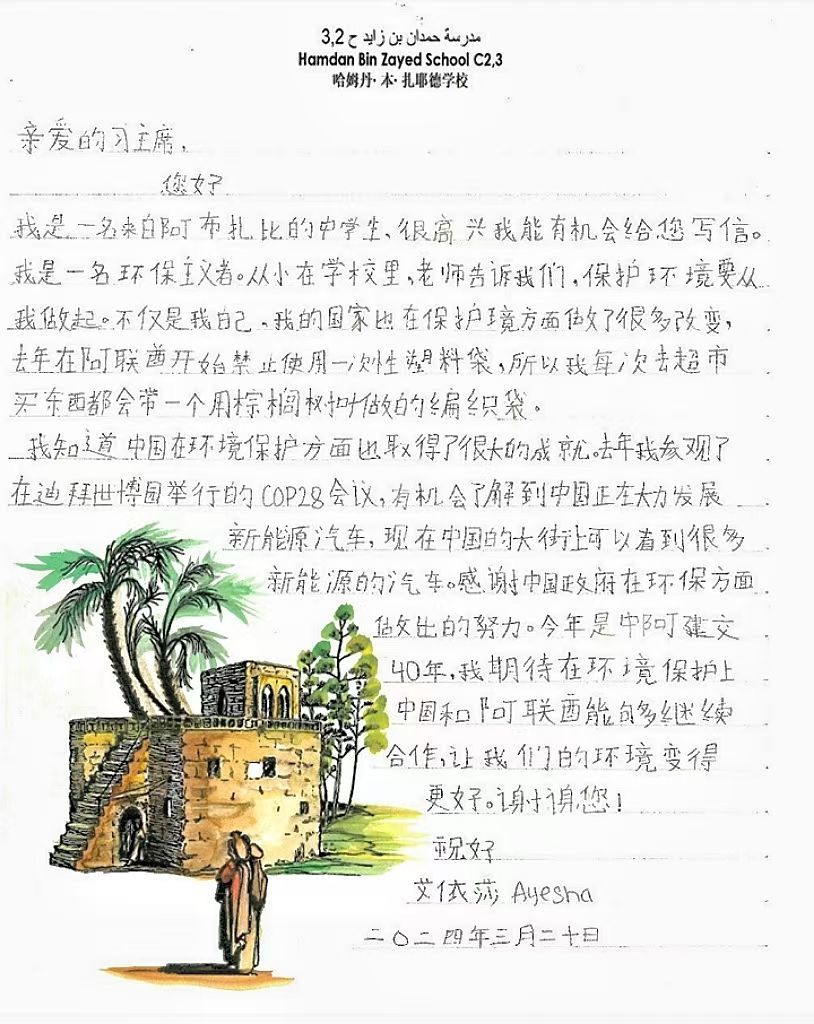 مدرسة حمدان بن زايد ح 3,2
Hamdan Bin Zayed School C2,3
哈姆丹·本·扎耶德学校
亲爱的习主席,
您好
我是一名来自阿布扎比的中学生、很高兴我能有机会给您写信。
我是一名环保主义者。从小在学校里,老师告诉我们,保护环境要从
我做起。不仅是我自己,我的国家也在保护境方面做了很多改变,
去年在阿联酋开始禁止使用一次性塑料袋,所以我每次去超市
买东西都会带一个用棕榈树叶做的编织袋。
我知道中国在环境保护方面也取得了很大的成就。去年我参观了
在迪拜世博园举行的COP28会议,有机会了解到中国正在大力发展
新能源汽车,现在中国的大街上可以看到很多
新能源的汽车。感谢中国政府在环保方面
做出的努力。今年是中阿建交
40年,我期待在环境保护上
中国和阿联酋能够多继续
合作,让我们的环境变得
更好。谢谢您!
祝好
艾依莎 Ayesha
二〇二四年三月二十日